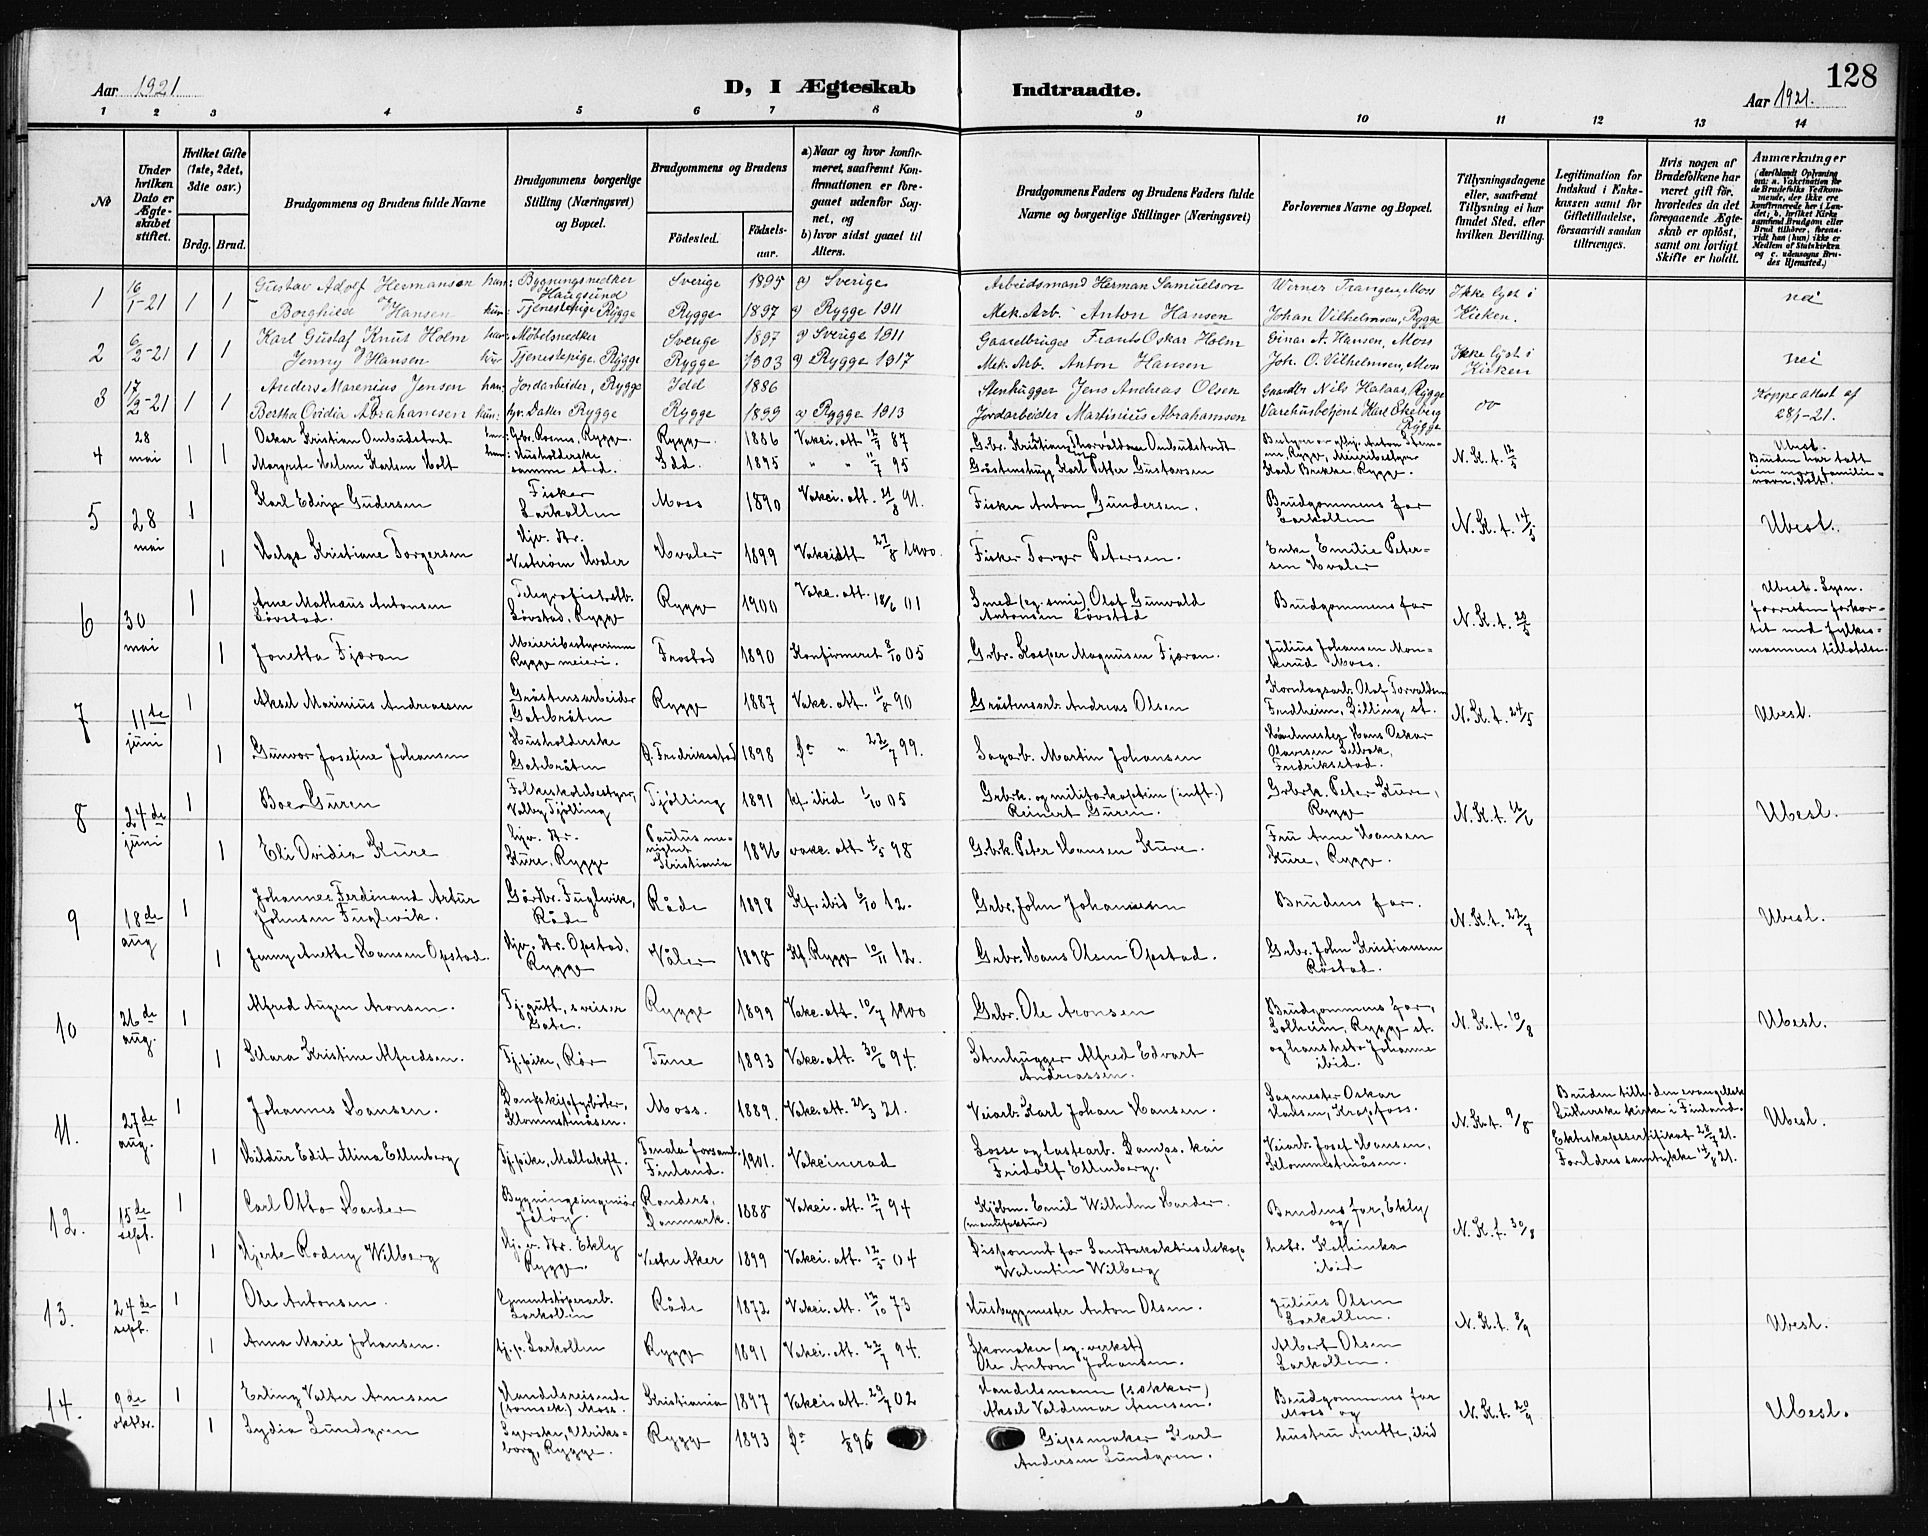 128
Aar 1921
D, I Ægteskab Indtraadte.
Aar 1921.
1 2 3 4 5 6 7 8 9 10 11 12 13 14
No
Under hvilken Dato er Ægteskabet stiftet.
Hvilket Gifte (1ste, 2det, 3die osv.)
Brdg. Brud.
Brudgommens og Brudens fulde Navne
Brudgommens borgerlige Stilling (Næringsvei) og Bopæl.
Brudgommens og Brudens
Fødested.
Fødselsaar.
a) Naar og hvor konfirmeret, saafremt Konfirmationen er foregaaet udenfor Sognet, og
b) hvor sidst gaaet til Alters.
Brudgommens Faders og Brudens Faders fulde Navne og borgerlige Stillinger (Næringsvei)
Forlovernes Navne og Bopæl.
Tillysningsdagene eller, saafremt Tillysning ei har fundet Sted, efter hvilken Bevilling.
Legitimation for Indskud i Enkekassen samt for Giftetilladelse, forsaavidt saadan tiltrænges.
Hvis nogen af Brudefolkene har været gift før, hvorledes da det foregaaende Ægteskab er opløst, samt om lovligt Skifte er holdt.
Anmærkninger
1 16/1-21 1 1 Gustav Adolf Hermansen han: Bygningssnedker Haugsund Sverige 1895 a) Sverige Arbeidsmand Herman Samuelson Moss Ikke lyst i nei
og
Borghild Hansen hun: Tjenestepige Rygge Rygge 1897 a) Rygge 1911 Mek. Arb. Anton Hansen Johan Vilhelmsen, Rygge Kirken.
2 6/2-21 1 1 Karl Gustaf Knut Holm han: Møbelsnedker Sverige 1897 a) Sverige 1911 Frants Oskar Holm Einar A. Hansen, Moss Ikke lyst i nei
Jenny Hansen hun: Tjenestepige, Rygge Rygge 1903 a) Rygge 1917 Mek. Arb. Anton Hansen Joh. O. Vilhelmsen, Moss Kirken
3 17/2-21 1 1 Anders Marenius Jensen han: Jordarbeider, Rygge Idd 1886 Stenhugger Jens Andreas Olsen Gaardbr. Nils Halaas, Rygge Koppeattest af
Bertha Ovidia Abrahamsen hun: hjv. Datter Rygge Rygge 1899 a) Rygge 1913 Jordarbeider Martinius Abrahamson Varehusbetjent Karl Ekeberg Rygge 28/1-21.
4 28 mai 1 1 Oskar Kristian Ombudstvedt Rygge. Rygge. 1886 Vakci. att. 12/7 87 N. K. t. 12/5 Ubesl.
Margrete Helene Karlsen Holt Husholderske samme sted. Idd. 1895 " " 11/7 95 Karl Petter Gustavsen Karl Brekke, Rygge. Bruden har tatt familienavn, Holt.
5 28 mai 1 Karl Edvin Gudersen Fisker Larkollen Moss 1890 Vakci. att. 21/8 91. Fisker Anton Gundersen. Brudgommens far Larkollen N. K. t. 14/5 Ubesl.
1 Helga Kristiane Torgersen Hjv. dtr. Vesterøen Hvaler Hvaler 1899 Vakci att 27/8 1900. Fisker Torger Petersen. Enke Emilie Petersen Hvaler
6 30 mai 1 Arne Mathæus Antonsen Løvstad. Løvstad, Rygge Rygge 1900 Vakc. att. 18/6 01 Smed (eg. smie) Olaf Gunvald Antonsen Løvstad Brudgommens far N. K. t. 23/5 Ubesl. Lysn. forresten forkortet med fylkesmannens tillatelse.
1 Jonetta Fjæran Meieribestyrerinne Rygge meieri. Frostad 1890 Konfirmeret 8/10 05 Grbr. Kasper Magnusen Fjæran. Julius Johansen Monkerud Moss.
7 11te juni 1 Aksel Marinius Andreassen Gråstensarbeider Gatebråten Rygge 1887 Vakc. att. 11/8 90 Gråstensarb. Andreas Olsen Kornlagsarb. Olaf Torvaldsen Fredheim, Dilling st. N. K. t. 24/5 Ubesl.
1 Gunvor Josefine Johansen Husholderske Gatebråten Ø. Fredrikstad 1898 do " 22/7 99. Sagarb. Martin Johansen Hans Oskar Olavesen Selbak, Fredriksstad.
8 24de juni 1 Boe Guren Folkeskolebestyrer, Valby Tjølling Tjølling 1891 kf. ibid 1/10 05 Grbrk. og militærkaptein (inft.) Reinert Guren. Grbrk. Peter Kure, Rygge N. K. t. 16/6 Ubesl.
1 Eli Ovidia Kure hjv. dtr. Kure, Rygge Paulus menighet Kristiania 1896 vakc. att 4/5 98 Grbrk. Peter Hansen Kure. Fru Anne Hansen Kure, Rygge.
9 18de aug 1 Johannes Ferdinand Artur Johnsen Fuglevik. Gårdbr. Fuglevik, Råde Råde 1898 Kf. ibid 6/10 12. Grbr. John Johannesen Brudens far. N. K. t. 22/7 Ubesl.
1 Jenny Anette Hansen Opstad. Hjv. dtr. Opstad, Rygge Våler 1898 Kf. Rygge 10/11 12. Grbr. Hans Olsen Opstad. Grbr. John Kristiansen Røstad.
10 26de aug. 1 Alfred Augen Aronsen. Tj.gutt, sveiser Gate. Rygge 1899 Vakc. att. 10/7 1900 Grbr. Ole Aronsen Brudgommens far, Solheim, Rygge st. og hans hstr. Johanne ibid. N. K. t. 10/8 Ubesl.
1 Klara Kristine Alfredsen. Tj.pike, Rør Tune 1893 Vakc. att. 30/6 94. Stenhugger Alfred Edvart Andreassen.
11. 27de aug. 1 Johannes Hansen. Dampskipsfyrbøter, Klommestenåsen. Moss. 1889. Vakc. att. 21/3 21. Veiarb. Karl Johan Hansen. Sagmester Oskar Hansen, Krapfoss. N. K. t. 9/8 Bruden tilh. den evangelisk Lutherske kirke i Finland. Ubesl.
1 Hildur Edit Alina Ellenberg Tj.pike, Mallakoff. Tenala forsaml. Finland. 1901. Vakcinerad Losse og lastearb. Damps.kai Fridolf Ellenberg. Veiarb. Josef Hansen, Klommestenåsen. Ekteskapssertifikat 28/7 21. Forældres samtykke 14/8 21.
12. 15de sept. 1 Carl Otto Harder Bygningsingeniør Jeløy. Randers, Danmark. 1888 Vakci. att. 12/7 94 Kjøbm. Emil Wilhelm Harder. (manufaktur) Brudens far, Ekely og N. K. t. 30/8
1 Hjerte Rodny Wilberg Hj.v. dtr. Ekely Rygge. Vestre Aker 1899 Vakci. att. 12/5 04 Disponent for Sandtakaktieselskap Walentin Wilberg hstr. Kathinka ibid
13. 24de sept. 1 Ole Antonsen. Cementstøperarb. Larkollen Råde 1872 Vakci. att. 12/10 73 Husbyggmester Anton Olsen. Julius Olsen Larkollen. N. K. t. 2/9 Ubesl.
1 Anna Marie Johansen. tj.p. Larkollen Rygge 1891 Vakci. att. 22/7 94. Skomaker (eg. verkst) Ole Anton Johansen. Albert Olsen Larkollen.
14. 9de oktbr. 1 Erling Valter Arnesen Handelsreisende Moss. Kristiania 1897 Vakci. att. 29/7 02 Handelsmann Aksel Valdemar Arnesen. Brudgommens far Moss og N. K. t. 20/9 Ubesl.
1 Lydia Lundgren Syerske, Ulriksborg, Rygge. Rygge 1893 do 1/8 96 Gipsmaker Karl Andersen Lundgren. hustru Anette, ibid